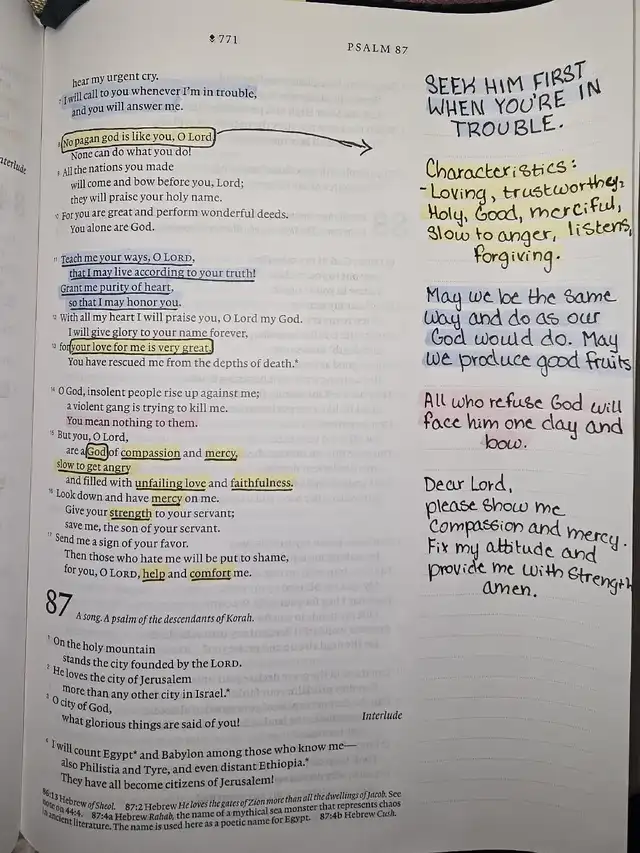 771
PSALM 87
hear my urgent cry.
7 I will call to you whenever I'm in trouble,
and you will answer me.
8 No pagan god is like you, O Lord
None can do what you do!
9 All the nations you made
will come and bow before you, Lord;
they will praise your holy name.
10 For you are great and perform wonderful deeds.
You alone are God.
11 Teach me your ways, O LORD,
that I may live according to your truth!
Grant me purity of heart,
so that I may honor you.
12 With all my heart I will praise you, O Lord my God.
I will give glory to your name forever,
13 for your love for me is very great.
You have rescued me from the depths of death.*
14 O God, insolent people rise up against me;
a violent gang is trying to kill me.
You mean nothing to them.
15 But you, O Lord,
are a God of compassion and mercy,
slow to get angry
and filled with unfailing love and faithfulness.
16 Look down and have mercy on me.
Give your strength to your servant;
save me, the son of your servant.
17 Send me a sign of your favor.
Then those who hate me will be put to shame,
for you, O LORD, help and comfort me.
87 A song. A psalm of the descendants of Korah.
1 On the holy mountain
stands the city founded by the LORD.
2 He loves the city of Jerusalem
more than any other city in Israel.*
3 O city of God,
what glorious things are said of you!
Interlude
4 I will count Egypt* and Babylon among those who know me—
also Philistia and Tyre, and even distant Ethiopia.*
They have all become citizens of Jerusalem!
86:13 Hebrew of Sheol. 87:2 Hebrew He loves the gates of Zion more than all the dwellings of Jacob. See
note on 44:4. 87:4a Hebrew Rahab, the name of a mythical sea monster that represents chaos
in ancient literature. The name is used here as a poetic name for Egypt. 87:4b Hebrew Cush.
SEEK HIM FIRST
WHEN YOU'RE IN
TROUBLE.
Characteristics:
-Loving, trustworthy,
Holy, Good, merciful,
Slow to anger, listens,
forgiving.
May we be the same
way and do as our
God would do. May
we produce good fruits
All who refuse God will
face him one day and
bow.
Dear Lord,
please show me
Compassion and mercy.
Fix my attitude and
provide me with strength
amen.